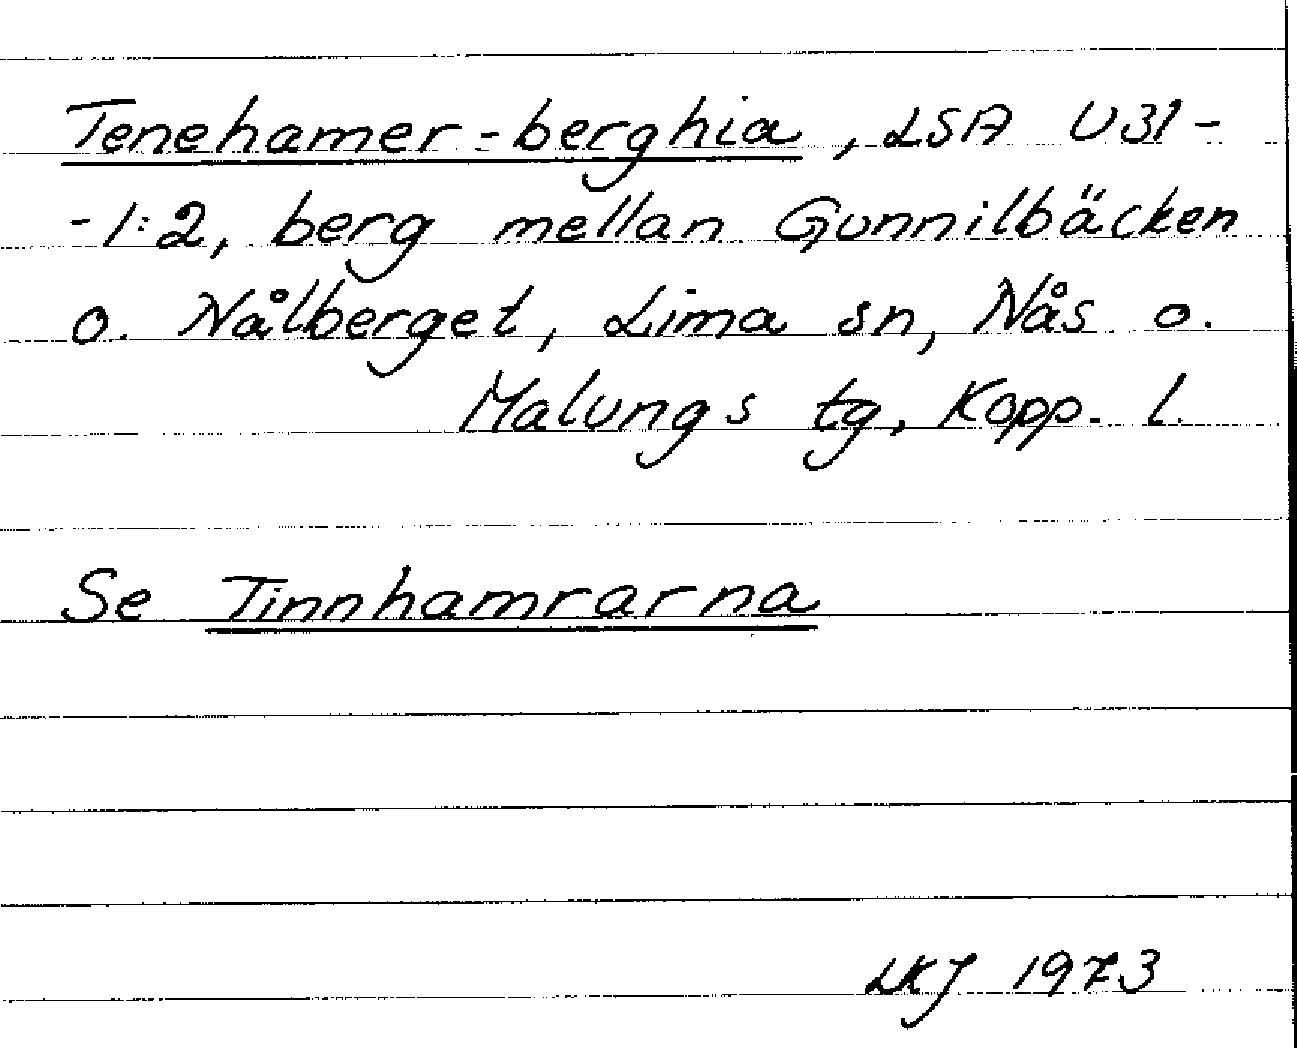 Tenehamer-berghia, LSA U31-
-1:2, berg mellan Gunnilbäcken
o. Nålberget, Lima sn, Nås o.
Malungs tg, Kopp. l.
Se Tinnhamrarna
LKJ 1973